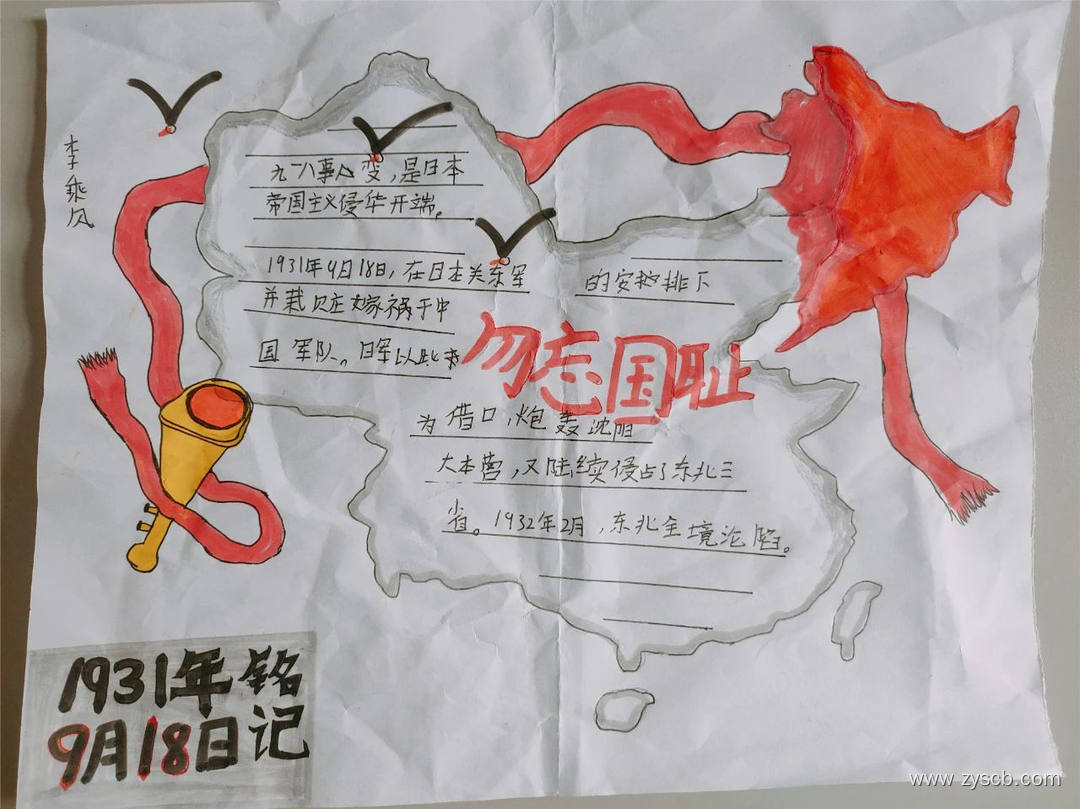 李乘风
九一八事变,是日本
帝国主义侵华开端。
1931年9月18日,在日本关东军的安排下
并栽贝庄嫁祸于中
国军队。日军以此
勿忘国耻
为借口,炮轰沈阳
大本营,又陆续侵占了东北三
省。1932年2月,东北全境沦陷。
1931年
9月18日
铭记
www.zyscb.com